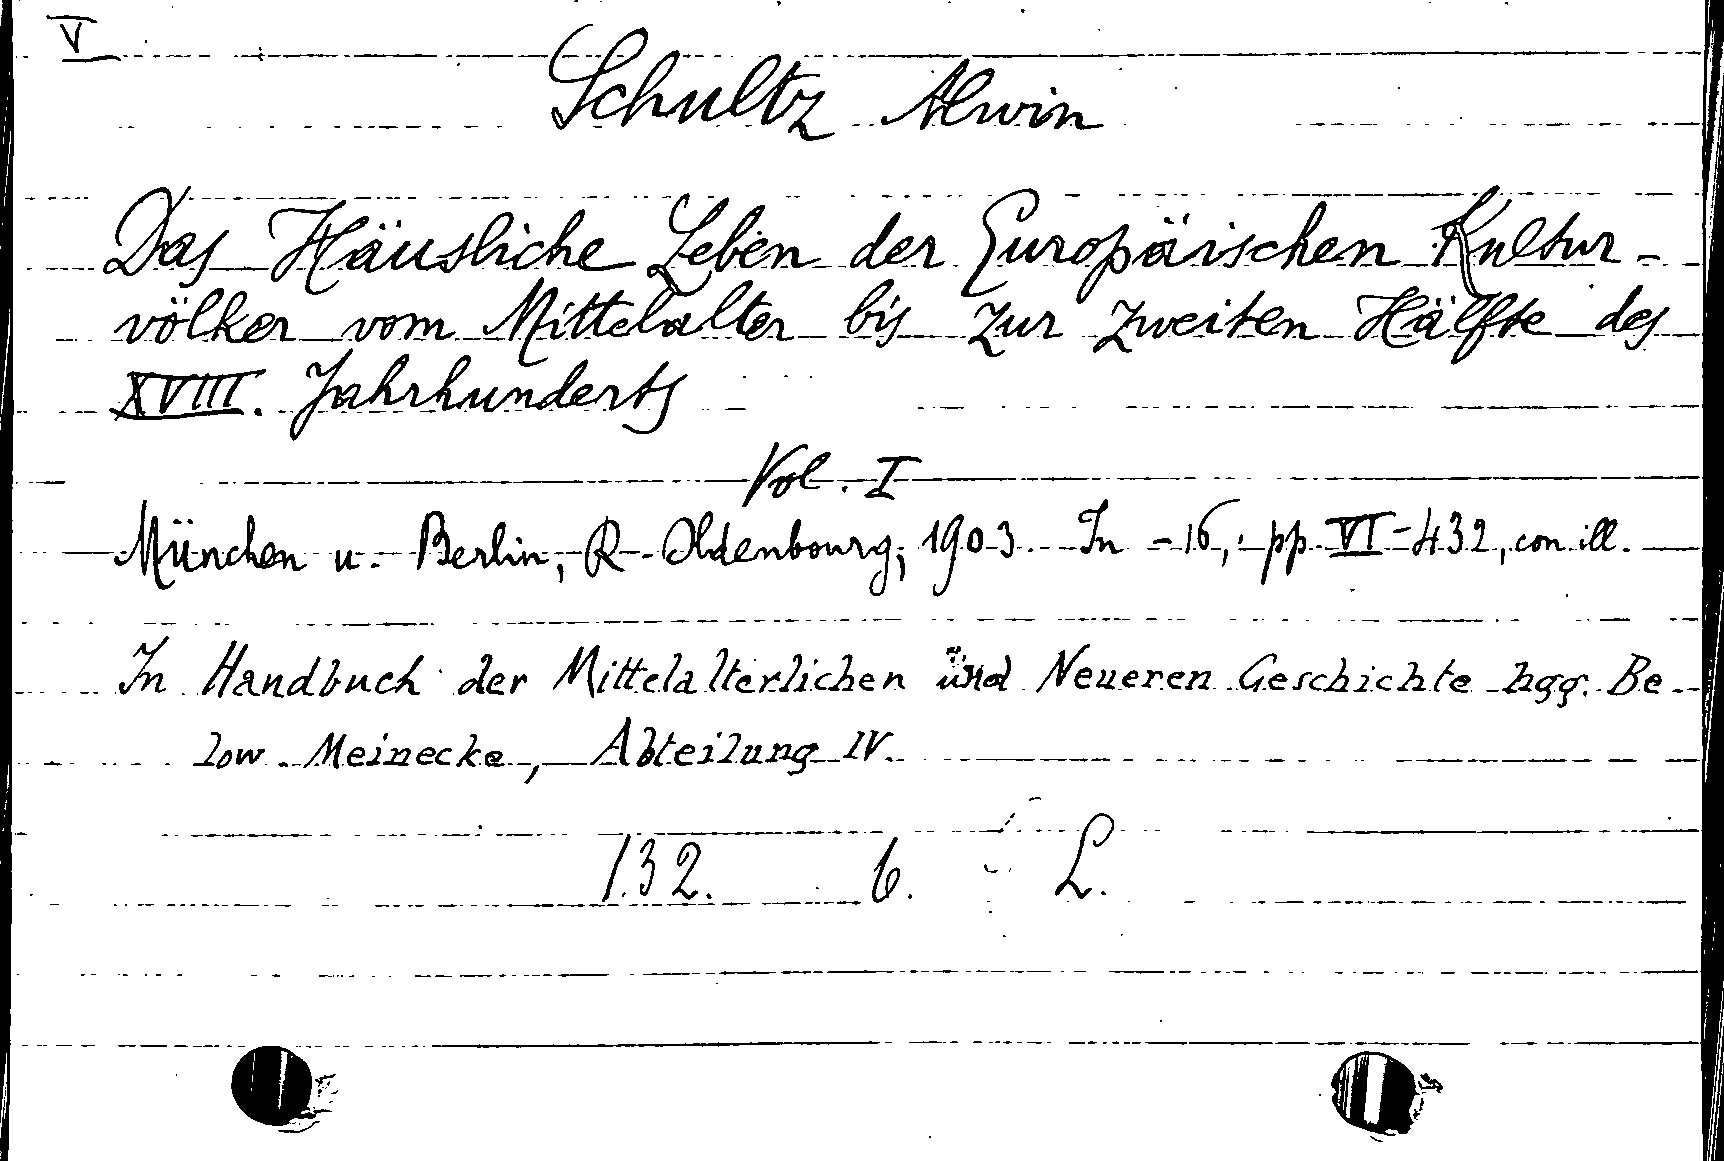 V
Schultz Alwin
Das Häusliche Leben der Europäischen Kultur-
völker vom Mittelalter bis zur zweiten Hälfte des
XVIII. Jahrhunderts
Vol. I
München u. Berlin, R. Oldenbourg, 1903. In -16, pp. VI-432, con ill.
In Handbuch der Mittelalterlichen und Neueren Geschichte hgg. Be-
low. Meinecke, Abteilung IV.
132. 6. L.